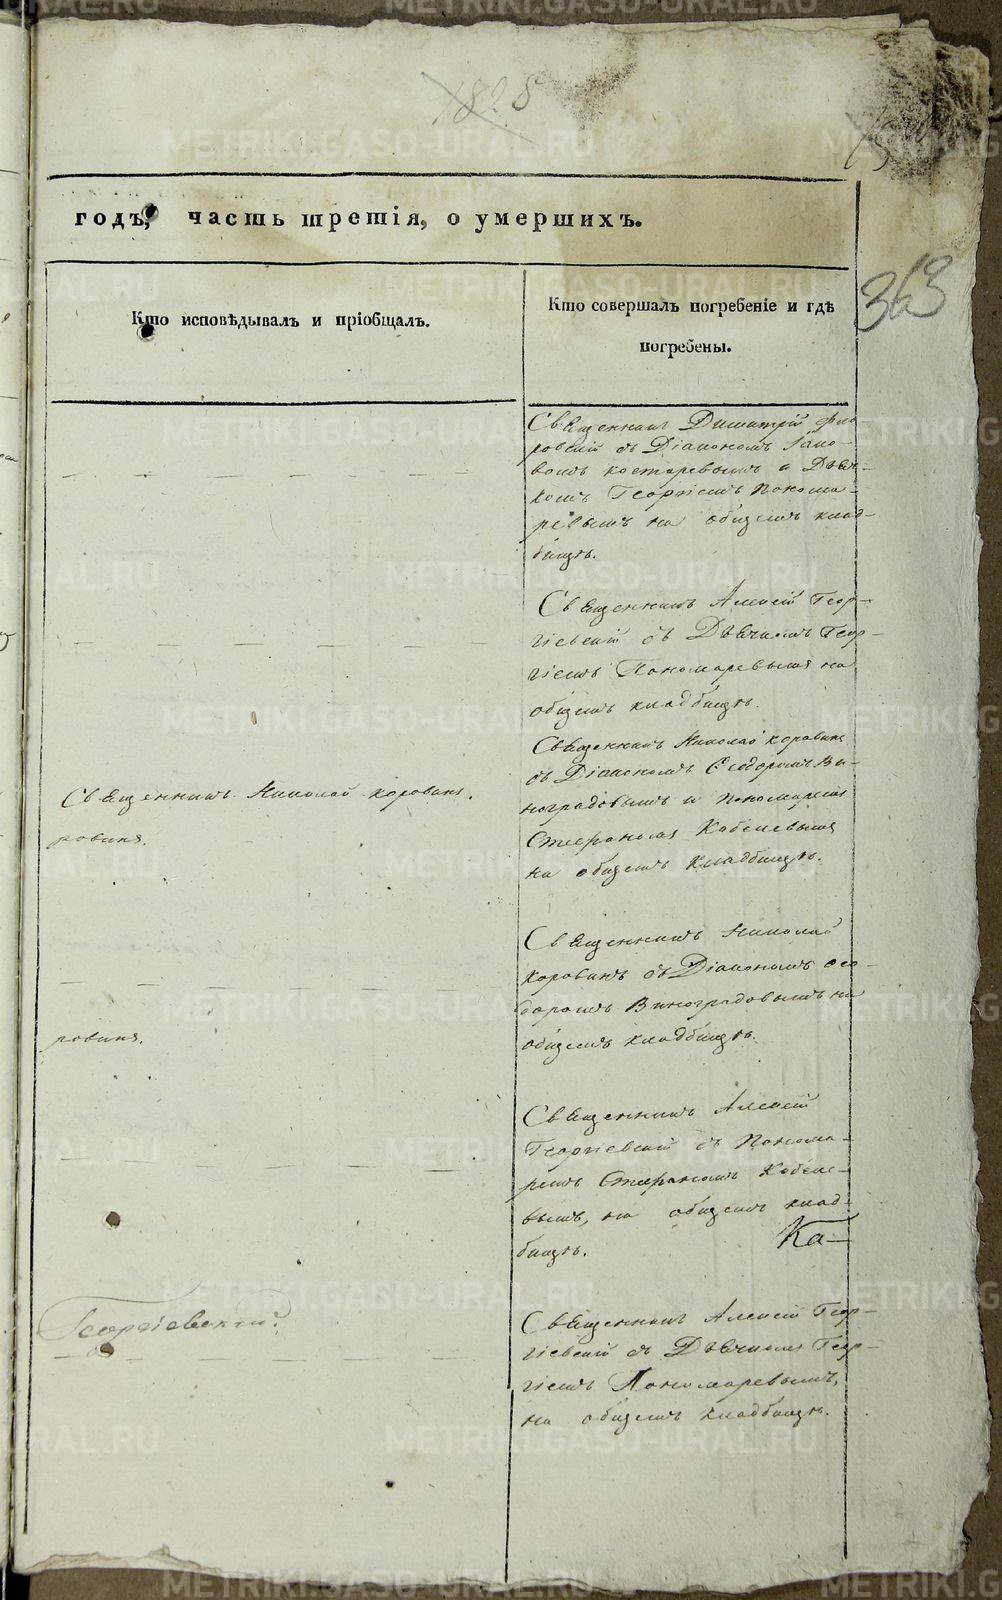 1828
годъ, часть третія, о умершихъ.
363
Кто исповѣдывалъ и пріобщалъ.
Кто совершалъ погребеніе и гдѣ
погребены.
Священникъ Димитрій Фло
ровскій съ Діакономъ Іако-
вомъ Костаревымъ и Дьяч-
комъ Георгіемъ Понома-
ревымъ на общемъ клад-
бищѣ.
Священникъ Алексій Геор-
гіевскій съ Дьячкомъ Геор-
гіемъ Пономаревымъ на
общемъ кладбищѣ.
Священникъ Николай Коровинъ.
ровинъ.
Священникъ Николай Коровинъ
съ Діакономъ Ѳедоромъ Ви-
ноградовымъ и пономаремъ
Стефаномъ Кобелевымъ
на общемъ кладбищѣ.
Священникъ Николай
Коровинъ съ Діакономъ Ѳео-
доромъ Виноградовымъ на
общемъ кладбищѣ.
ровинъ.
Священникъ Алексій
Георгіевскій съ Понома-
ремъ Стефаномъ Кобеле-
вымъ, на общемъ клад-
бищѣ.
Ка-
Георгіевскій
Священникъ Алексій Геор-
гіевскій съ Дьячкомъ Геор-
гіемъ Пономаревымъ,
на общемъ кладбищѣ.